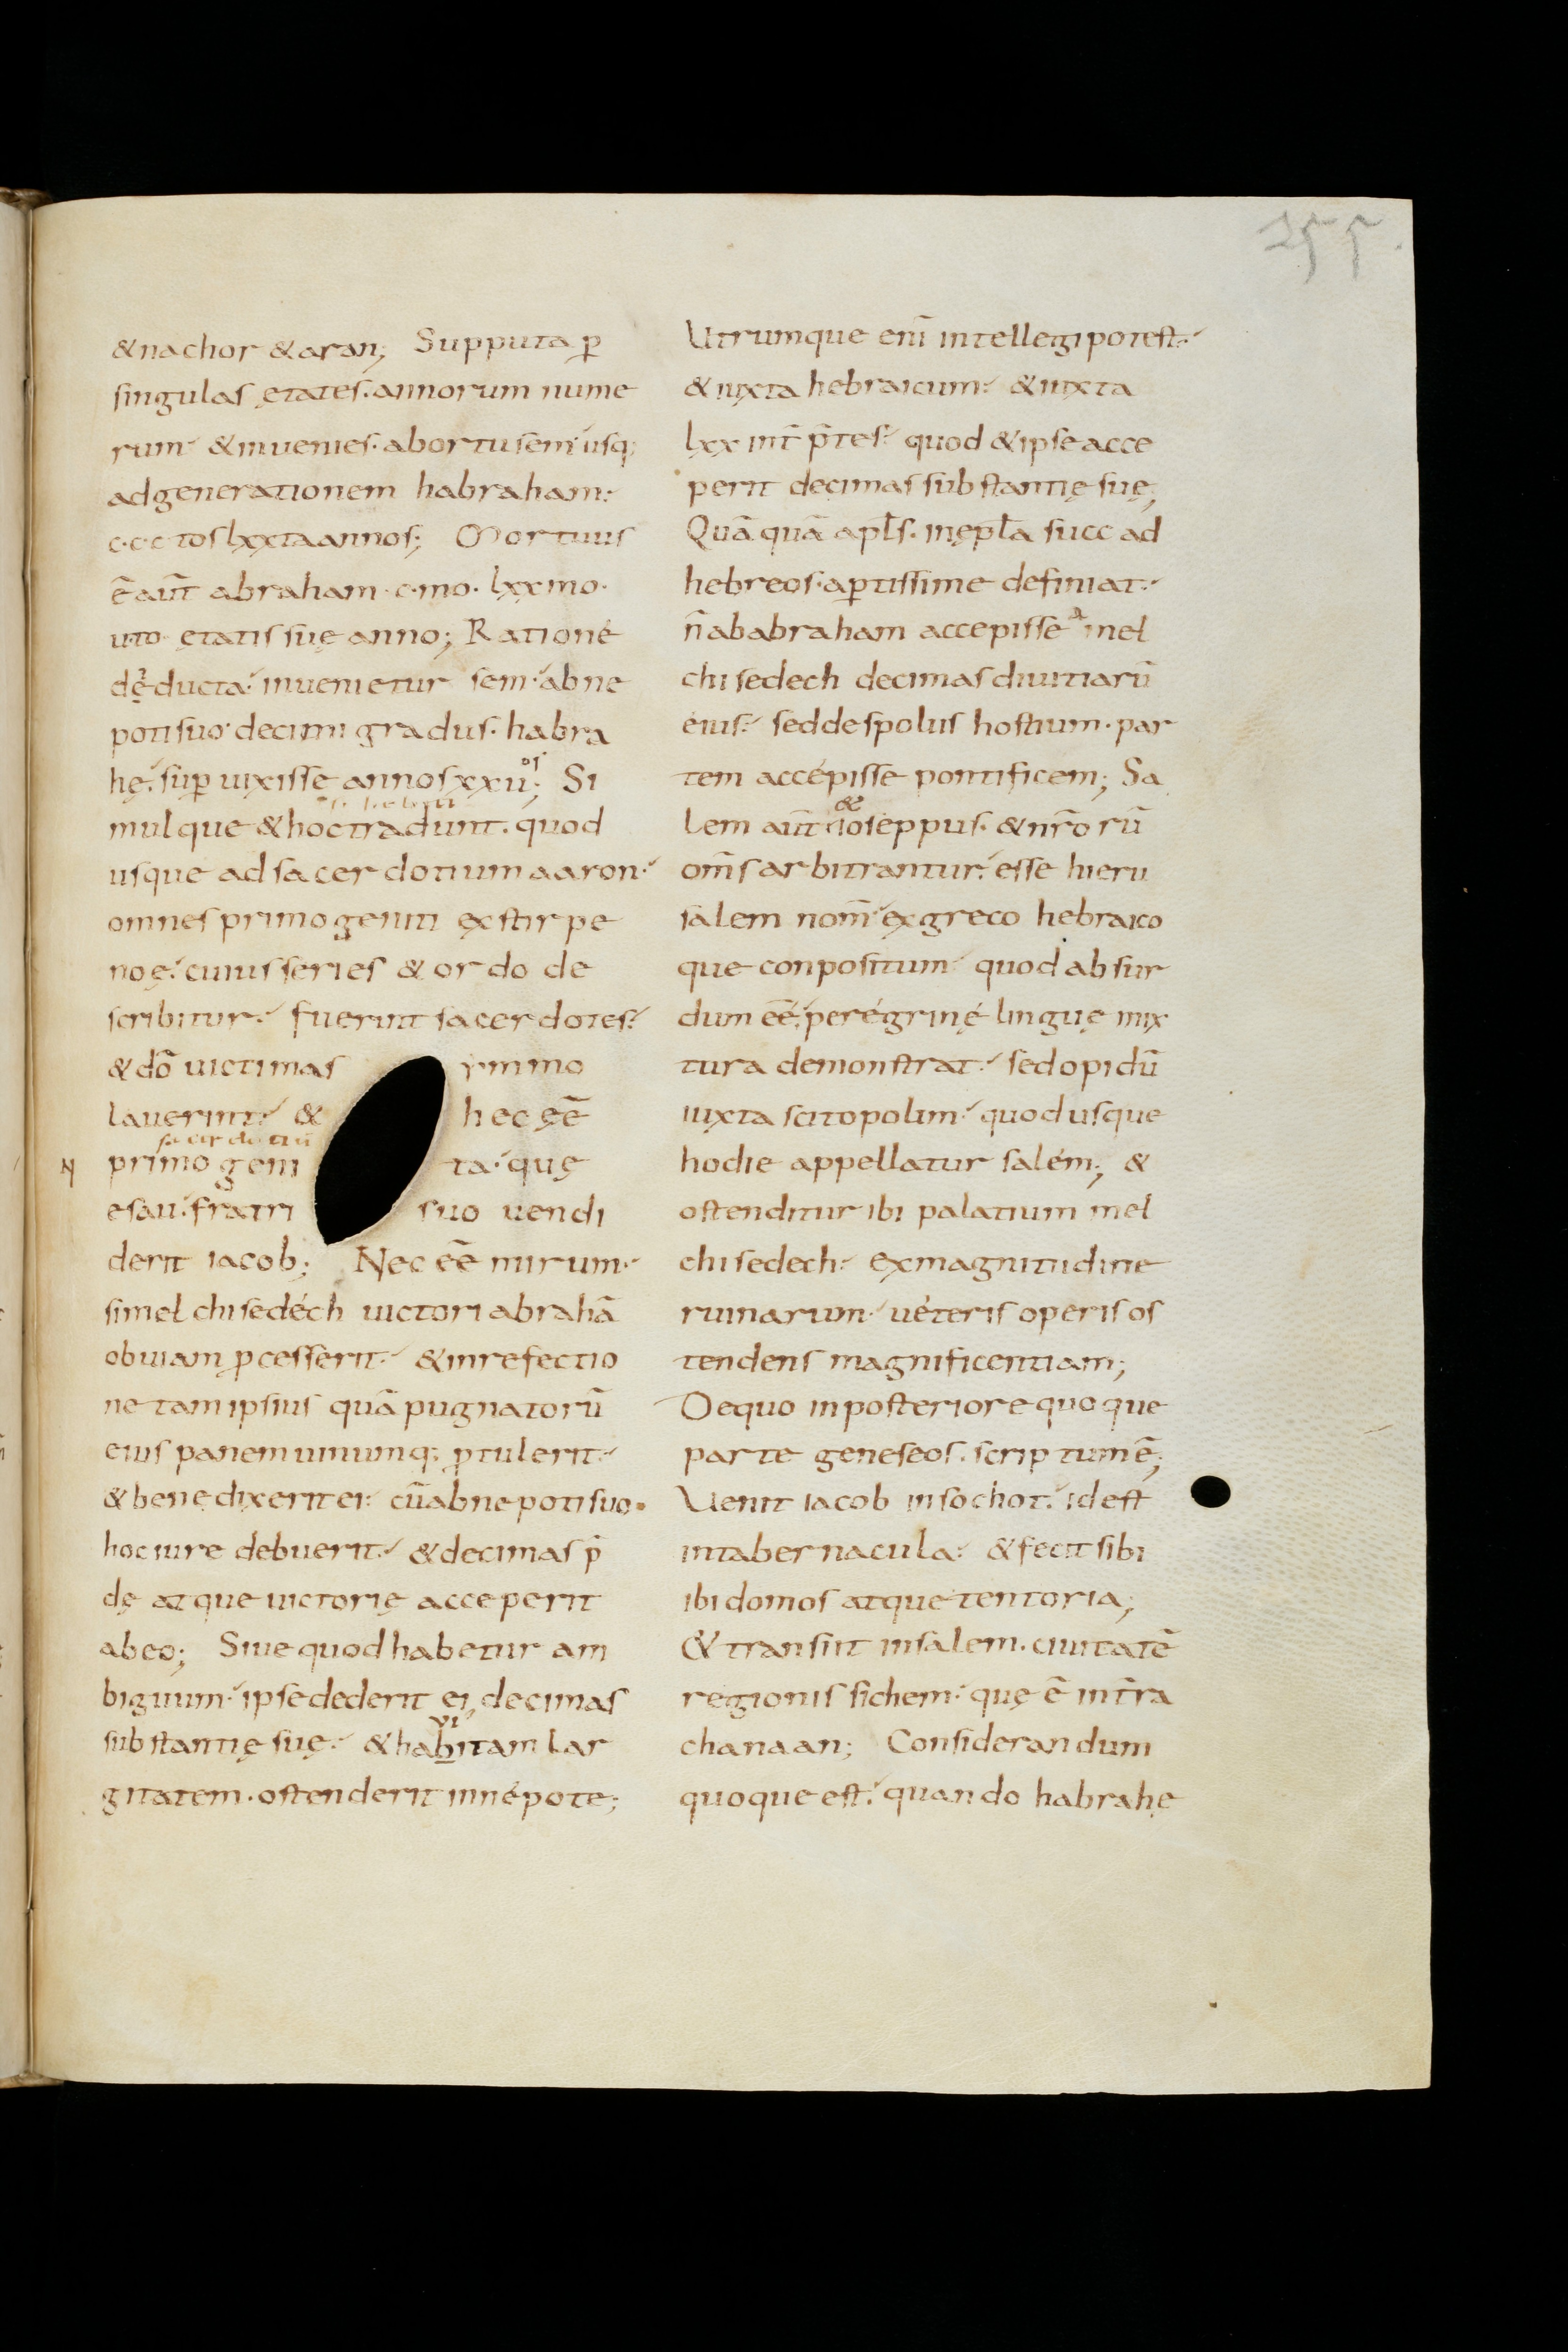 255
& nachor & aran; Supputa p̄
singulas ętates. annorum nume
rum & inuenies. abortu sem usq;
ad generationem habraham:
c.c.c tos lxxta annos; Mortuus
ē aūt abraham. c.mo. lxxmo.
u.to ętatis suę anno; Ratione
dę ducta inuenietur sem. abne
poti suo. decimi gradus. habra
hę. sup uixisse annos xxxu;os Si
mulque & hoc tradunt. quod
usque ad sacerdotium aaron.
omnes primogeniti ex stirpe
noę. cuius series & ordo de
scribitur. fuerint sacerdotes.
& dō uictimas immo
lauerint. & hec eē
sacerdotiū
primogeni ta. quę
esau. fratri suo uendi
derit iacob; Nec eē mirum.
si melchisedech uictori abrahā
obuiam pcesserit. & in refectio
ne tam ipsius quā pugnatorū
eius panem uinumq; ptulerit.
& benedixerit ei. cū abnepoti suo.
hoc iure debuerit. & decimas p̄
dę atque uictorię acceperit
abeo; Siue quod habetur am
biguum. ipse dederit ei decimas
ui
substantię suę. & habitam lar
gitatem. ostenderit in nepote;
Utrumque enī intellegi potest.
& iuxta hebraicum. & iuxta
lxx int̄ p̄tes. quod & ipse acce
perit decimas substantię suę;
Quā quā apl̄s. in epl̄a succ ad
hebreos. aptissime definiat.
n̄ ab abraham accepisse a mel
chisedech decimas diuitiarū
eius. sed de spoliis hostium. par
tem accepisse pontificem; Sa
lem aūt & ioseppus. & nr̄orū
om̄s arbitrantur. esse hieru
salem nom̄ ex greco hebraico
que conpositum quod absur
dum eē. peregrinę linguę mix
tura demonstrat. sed opidū
iuxta scitopolim. quod usque
hodie appellatur salem; &
ostenditur ibi palatium mel
chisedech. ex magnitudine
ruinarum. ueteris operis os
tendens magnificentiam;
De quo in posteriore quoque
parte geneseos. scriptum ē;
Uenit iacob in sochot. id est
in tabernacula. & fecit sibi
ibi domos atque tentoria;
& transiit in salem. ciuitatē
regionis sichem. quę ē in t̄ra
chanaan; Considerandum
quoque est. quando habrahę